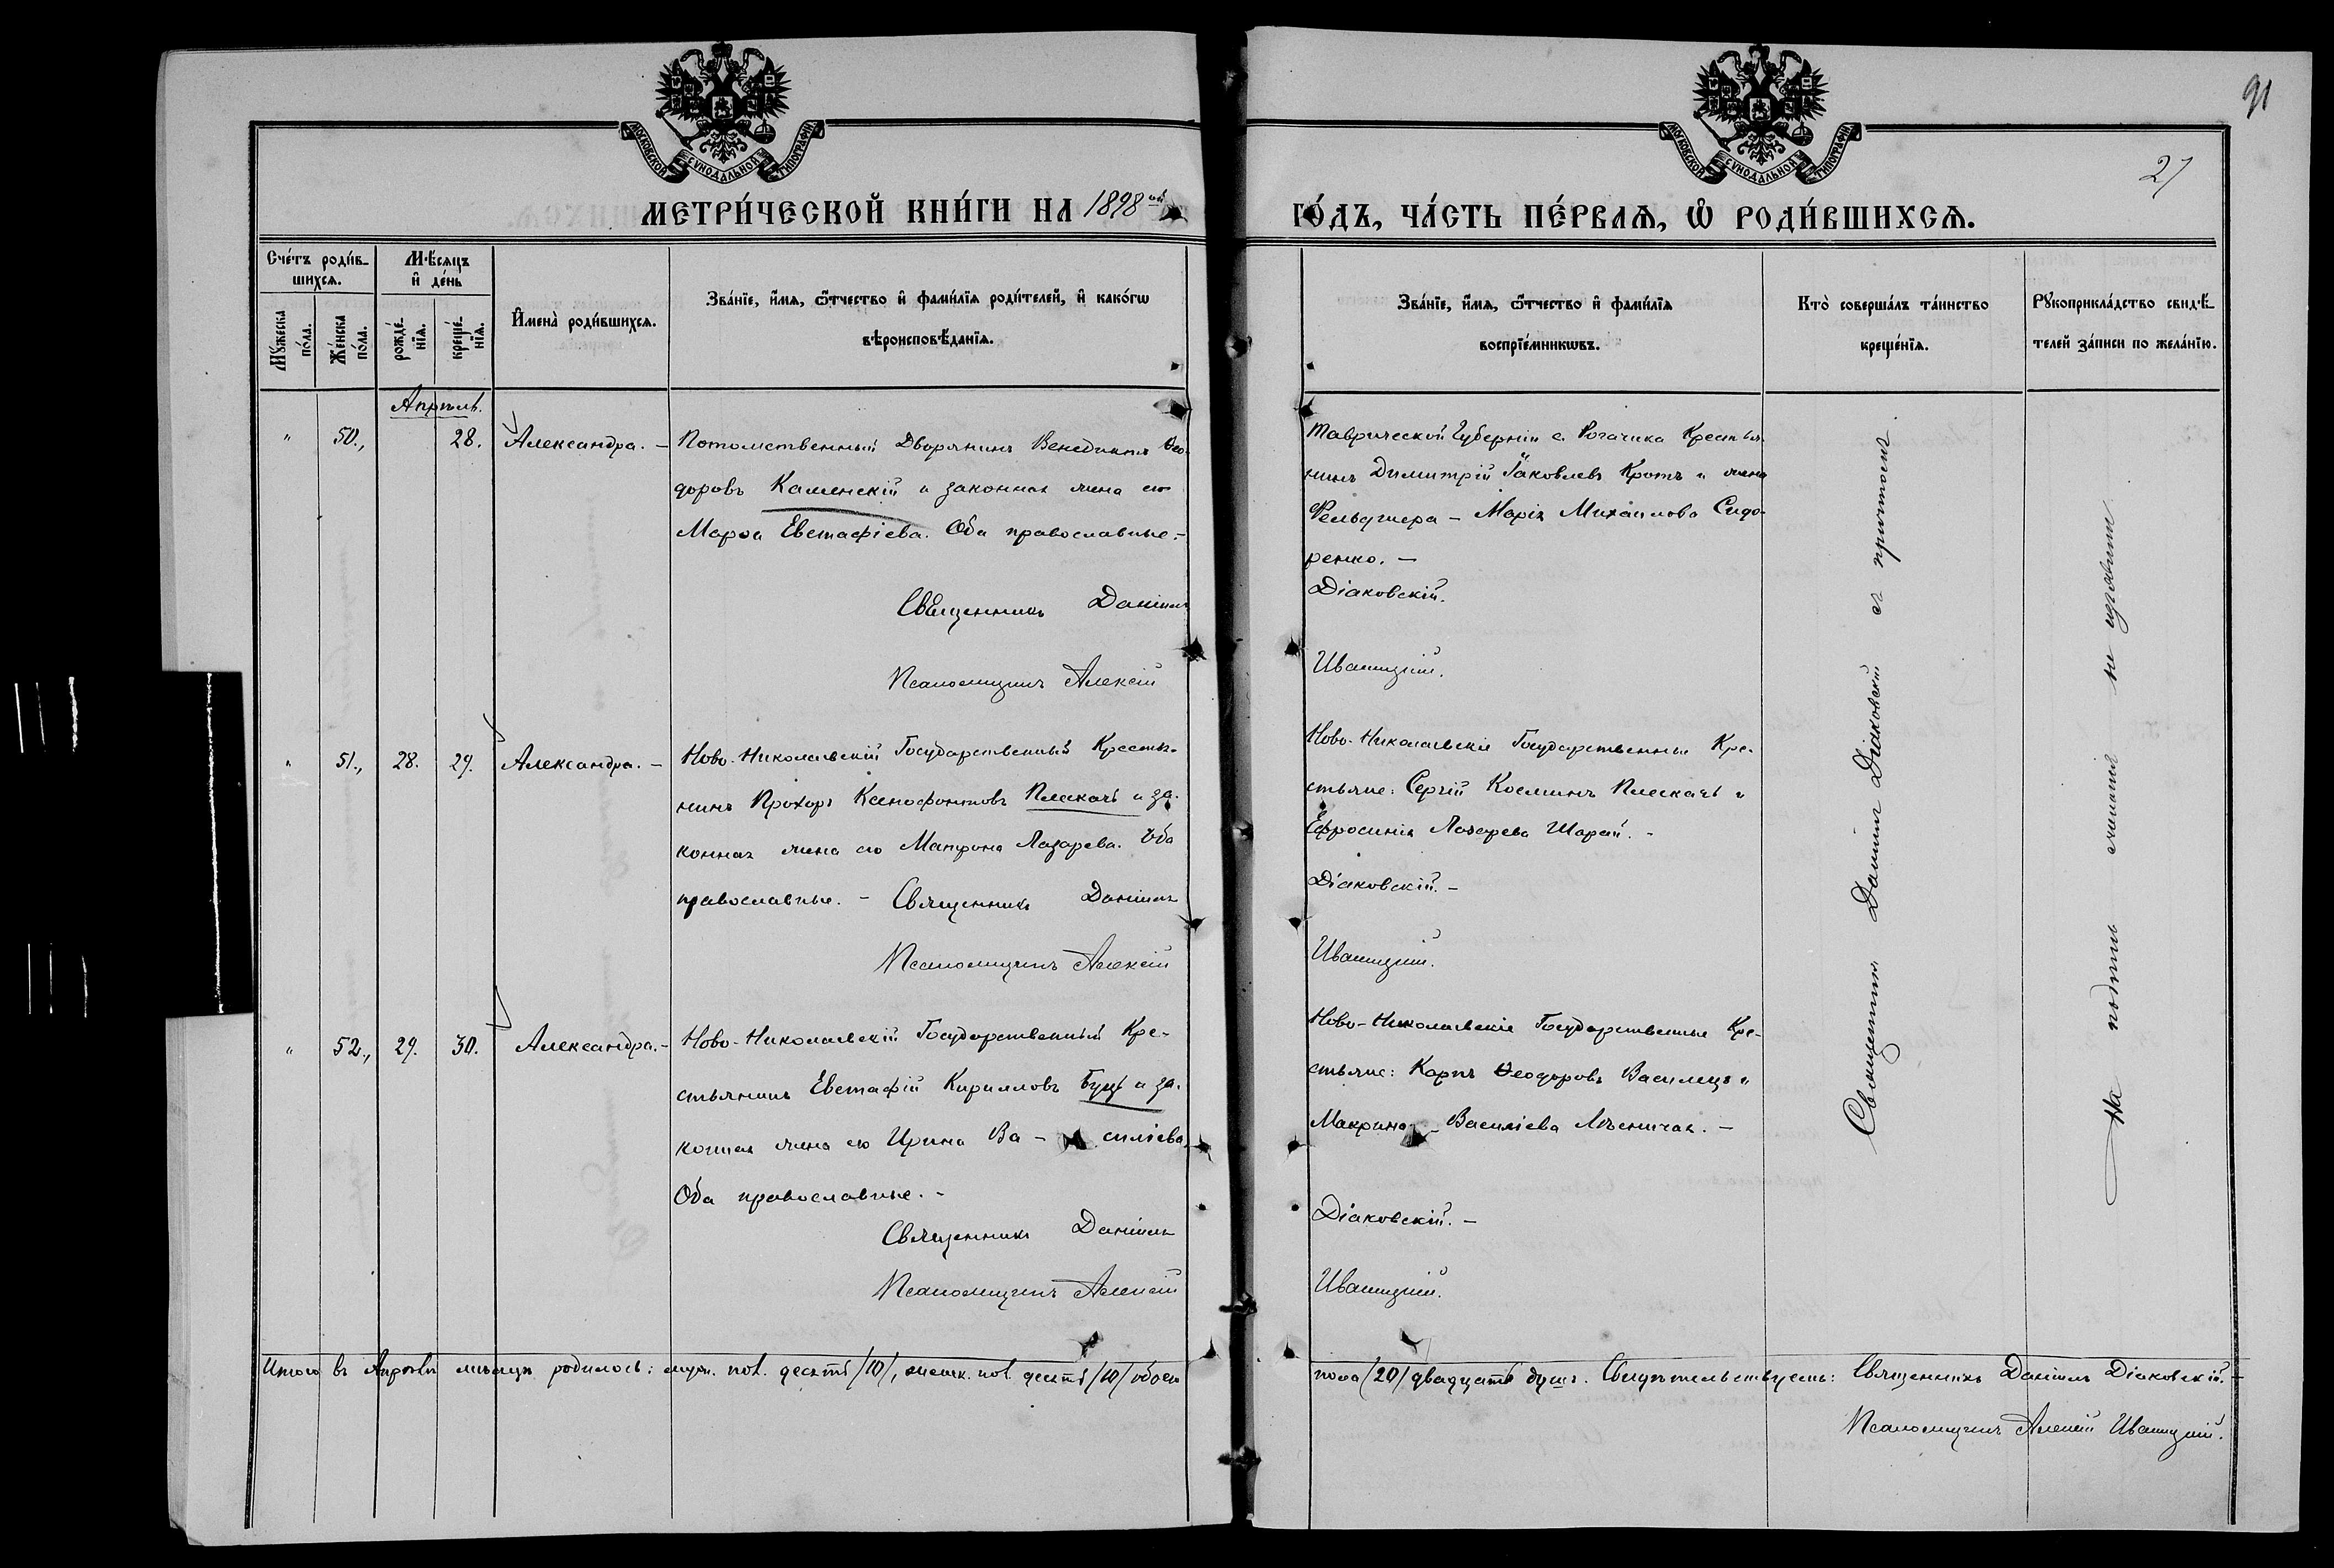 91
27
МОСКОВСКОЙ СѴНОДАЛЬНОЙ ТИПОГРАФІИ
МОСКОВСКОЙ СѴНОДАЛЬНОЙ ТИПОГРАФІИ
МЕТРИ́ЧЕСКОЙ КНИ́ГИ НА 1898ой
ГО́ДЪ, ЧА́СТЬ ПЕ́РВАѦ, Ѽ РОДИ́ВШИХСѦ.
Сче́тъ роди́в-
шихсѧ.
Мѣ́сѧцъ
и҆ де́нь
Мꙋ́жеска по́ла.
Же́нска по́ла.
рожде́-
нїѧ.
креще́-
нїѧ.
И҆мена̀ роди́вшихсѧ.
Зва́нїе, и҆́мѧ, ѻ҆́тчество и҆ фами́лїѧ роди́телей, и҆ како́гѡ
вѣроисповѣ́данїѧ.
Зва́нїе, и҆́мѧ, ѻ҆́тчество и҆ фами́лїѧ
воспрїе́мникѡвъ.
Кто̀ соверша́лъ та́инство
креще́нїѧ.
Рꙋкоприкла́дство свидѣ́-
телей за́писи по жела́нїю.
Апрѣль.
" 50., 28. Александра. –
Потомственный Дворянинъ Венедиктъ Ѳео-
доровъ Каменскій и законная жена его
Марѳа Евстафіева. Оба православные. –
Священникъ Даніилъ
Псаломщикъ Алексій
Таврической Губерніи с. Рогачика Крестья-
нинъ Димитрій Іаковлевъ Кротъ и жена
Фельдшера – Марія Михаилова Сидо-
ренко. –
Діаковскій.
Иваницкій.
" 51., 28. 29. Александра. –
Ново-Николаевскій Государственный Крестья-
нинъ Прохоръ Ксенофонтовъ Плескачъ и за-
конная жена его Матрона Лазарева. Оба
православные. – Священникъ Даніилъ
Псаломщикъ Алексій
Ново-Николаевскіе Государственные Кре-
стьяне: Сергій Косминъ Плескачъ и
Ефросинія Лазарева Шарай. –
Діаковскій. –
Иваницкій.
" 52., 29. 30. Александра. –
Ново-Николаевскій Государственный Кре-
стьянинъ Евстафій Кирилловъ Буц и за-
конная жена его Ирина Ва – силіева.
Оба православные. –
Священникъ Даніилъ
Псаломщикъ Алексій
Ново-Николаевскіе Государственные Кре-
стьяне: Карпъ Ѳеодоровъ Василецъ и
Макрина – Василіева –
Діаковскій. –
Иваницкій.
Священникъ Даніилъ Діаковскій съ причтомъ
На подпись желанія не изъявили
Итого въ Апрѣлѣ мѣсяцѣ родилось: муж. пол. десять /10/, женск. пол. десять /10/ обоего
пола /20/ двадцать душъ. Свидѣтельствуемъ: Священникъ Даніилъ Діаковскій. –
Псаломщикъ Алексій Иваницкій.